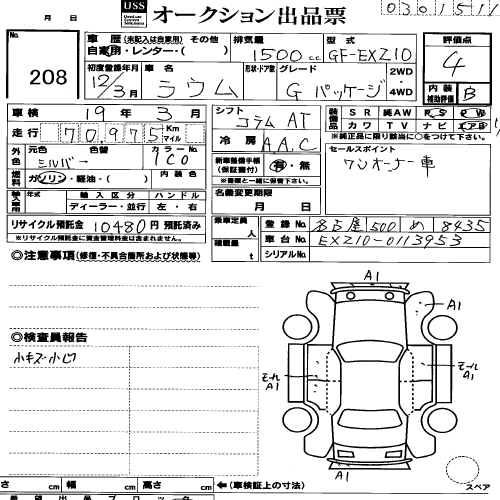 USS オークション出品票 0301511
月 日
No. 208
車歴 (未記入は自家用) その他
自家用・レンター・( )
排気量 1500 cc
型式 GF-EXZ10
評価点 4
初度登録年月 12/3月
車名 ラウム
形状・ドア数
グレード Gパッケージ
2WD・4WD
内装補助評価 B
車検 19年 3月
シフト コラムAT
装備品 SR 純AW PS PW
カワ TV ナビ エアB
※純正品に限り該当に○をつけて下さい
走行 70,975 Km マイル
冷房 A.A.C
セールスポイント
ワンオーナー車
外色 元色 シルバー 色替 カラーNo. 1C0
新車整備手帳(保証書付) 有・無
※書類と一緒に保管下さい
燃料 ガソリン・軽油・( ) 内装色
輸入車用 年式 輸入区分 ハンドル
ディーラー・並行 左・右
名義変更期限
月 日
リサイクル預託金 10480円 預託済み
※リサイクル預託金に資金管理料金は含まれません
乗車定員 人
積載量 t
登録No. 名古屋 500 め 8435
車台No. EXZ10-0113953
シリアルNo.
◎注意事項(修復・不具合箇所および状態等)
◎検査員報告
小キズ小凹
A1
A1
モール A1
モール A1
A1
スペア
長さ cm 幅 cm 高さ cm ←(車検証上の寸法)